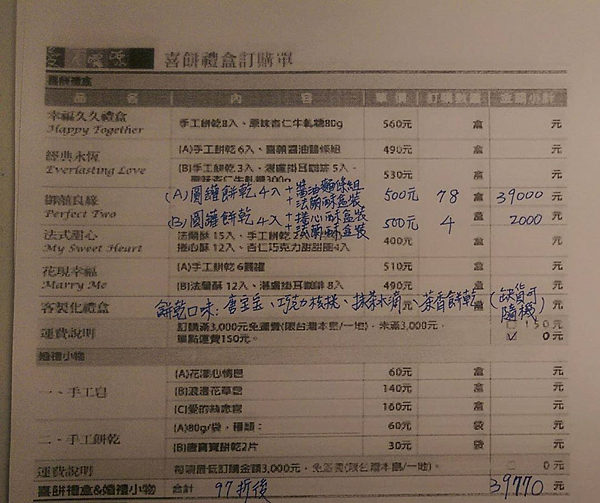 喜餅禮盒訂購單
喜餅禮盒
品 名 內 容 單 價 訂購數量 金額小計
幸福久久禮盒 手工餅乾8入、原味杏仁牛軋糖80g 560元 盒 元
Happy Together
經典永恆 (A)手工餅乾 6入、喜願醬油麵條組 490元 盒 元
Everlasting Love (B)手工餅乾 3入、濾掛耳咖啡 5入、 530元 盒 元
原味杏仁牛軋糖300g
良緣 (A)圓鐵餅乾4入+醬油麵條組+法蘭酥盒裝 500元 78 盒 39000 元
Perfect Two (B)圓鐵餅乾4入+捲心酥盒裝+法蘭酥盒裝 500元 4 盒 2000 元
法式甜心 法蘭酥 15入、手工餅乾 400元 盒 元
My Sweet Heart 捲心酥 12入、杏仁巧克力甜甜圈4入
花現幸福 (A)手工餅乾 6圓罐 510元 盒 元
Marry Me (B)法蘭酥 12入、濾掛耳咖啡 8入 490元 盒 元
客製化禮盒 餅乾口味:唐寶寶、巧克力核桃、抹茶水滴、茶香餅乾 (缺貨可隨機) 元 盒
運費說明 訂購滿3,000元免運費(限台灣本島/一地)，未滿3,000元， □ 150元
單點運費150元。 ✓ 0元
婚禮小物
一、手工皂 (A)花漾心情皂 60元 盒 元
(B)浪漫花草皂 140元 盒 元
(C)愛的絲密 160元 盒 元
二、手工餅乾 (A)80g/袋，種類： 60元 袋 元
(B)唐寶寶餅乾2片 30元 袋 元
運費說明 每項最低訂購金額3,000元，免運費(限台灣本島/一地)。 □ 0元
喜餅禮盒&婚禮小物 合計 97折後 39770 元